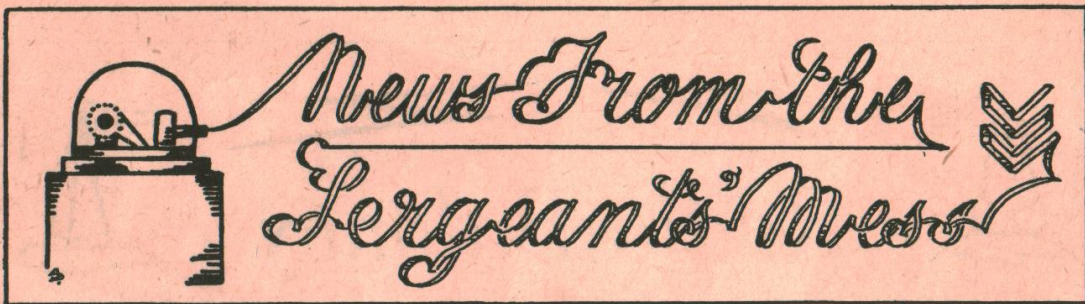 News From the
Sergeant's' Mess